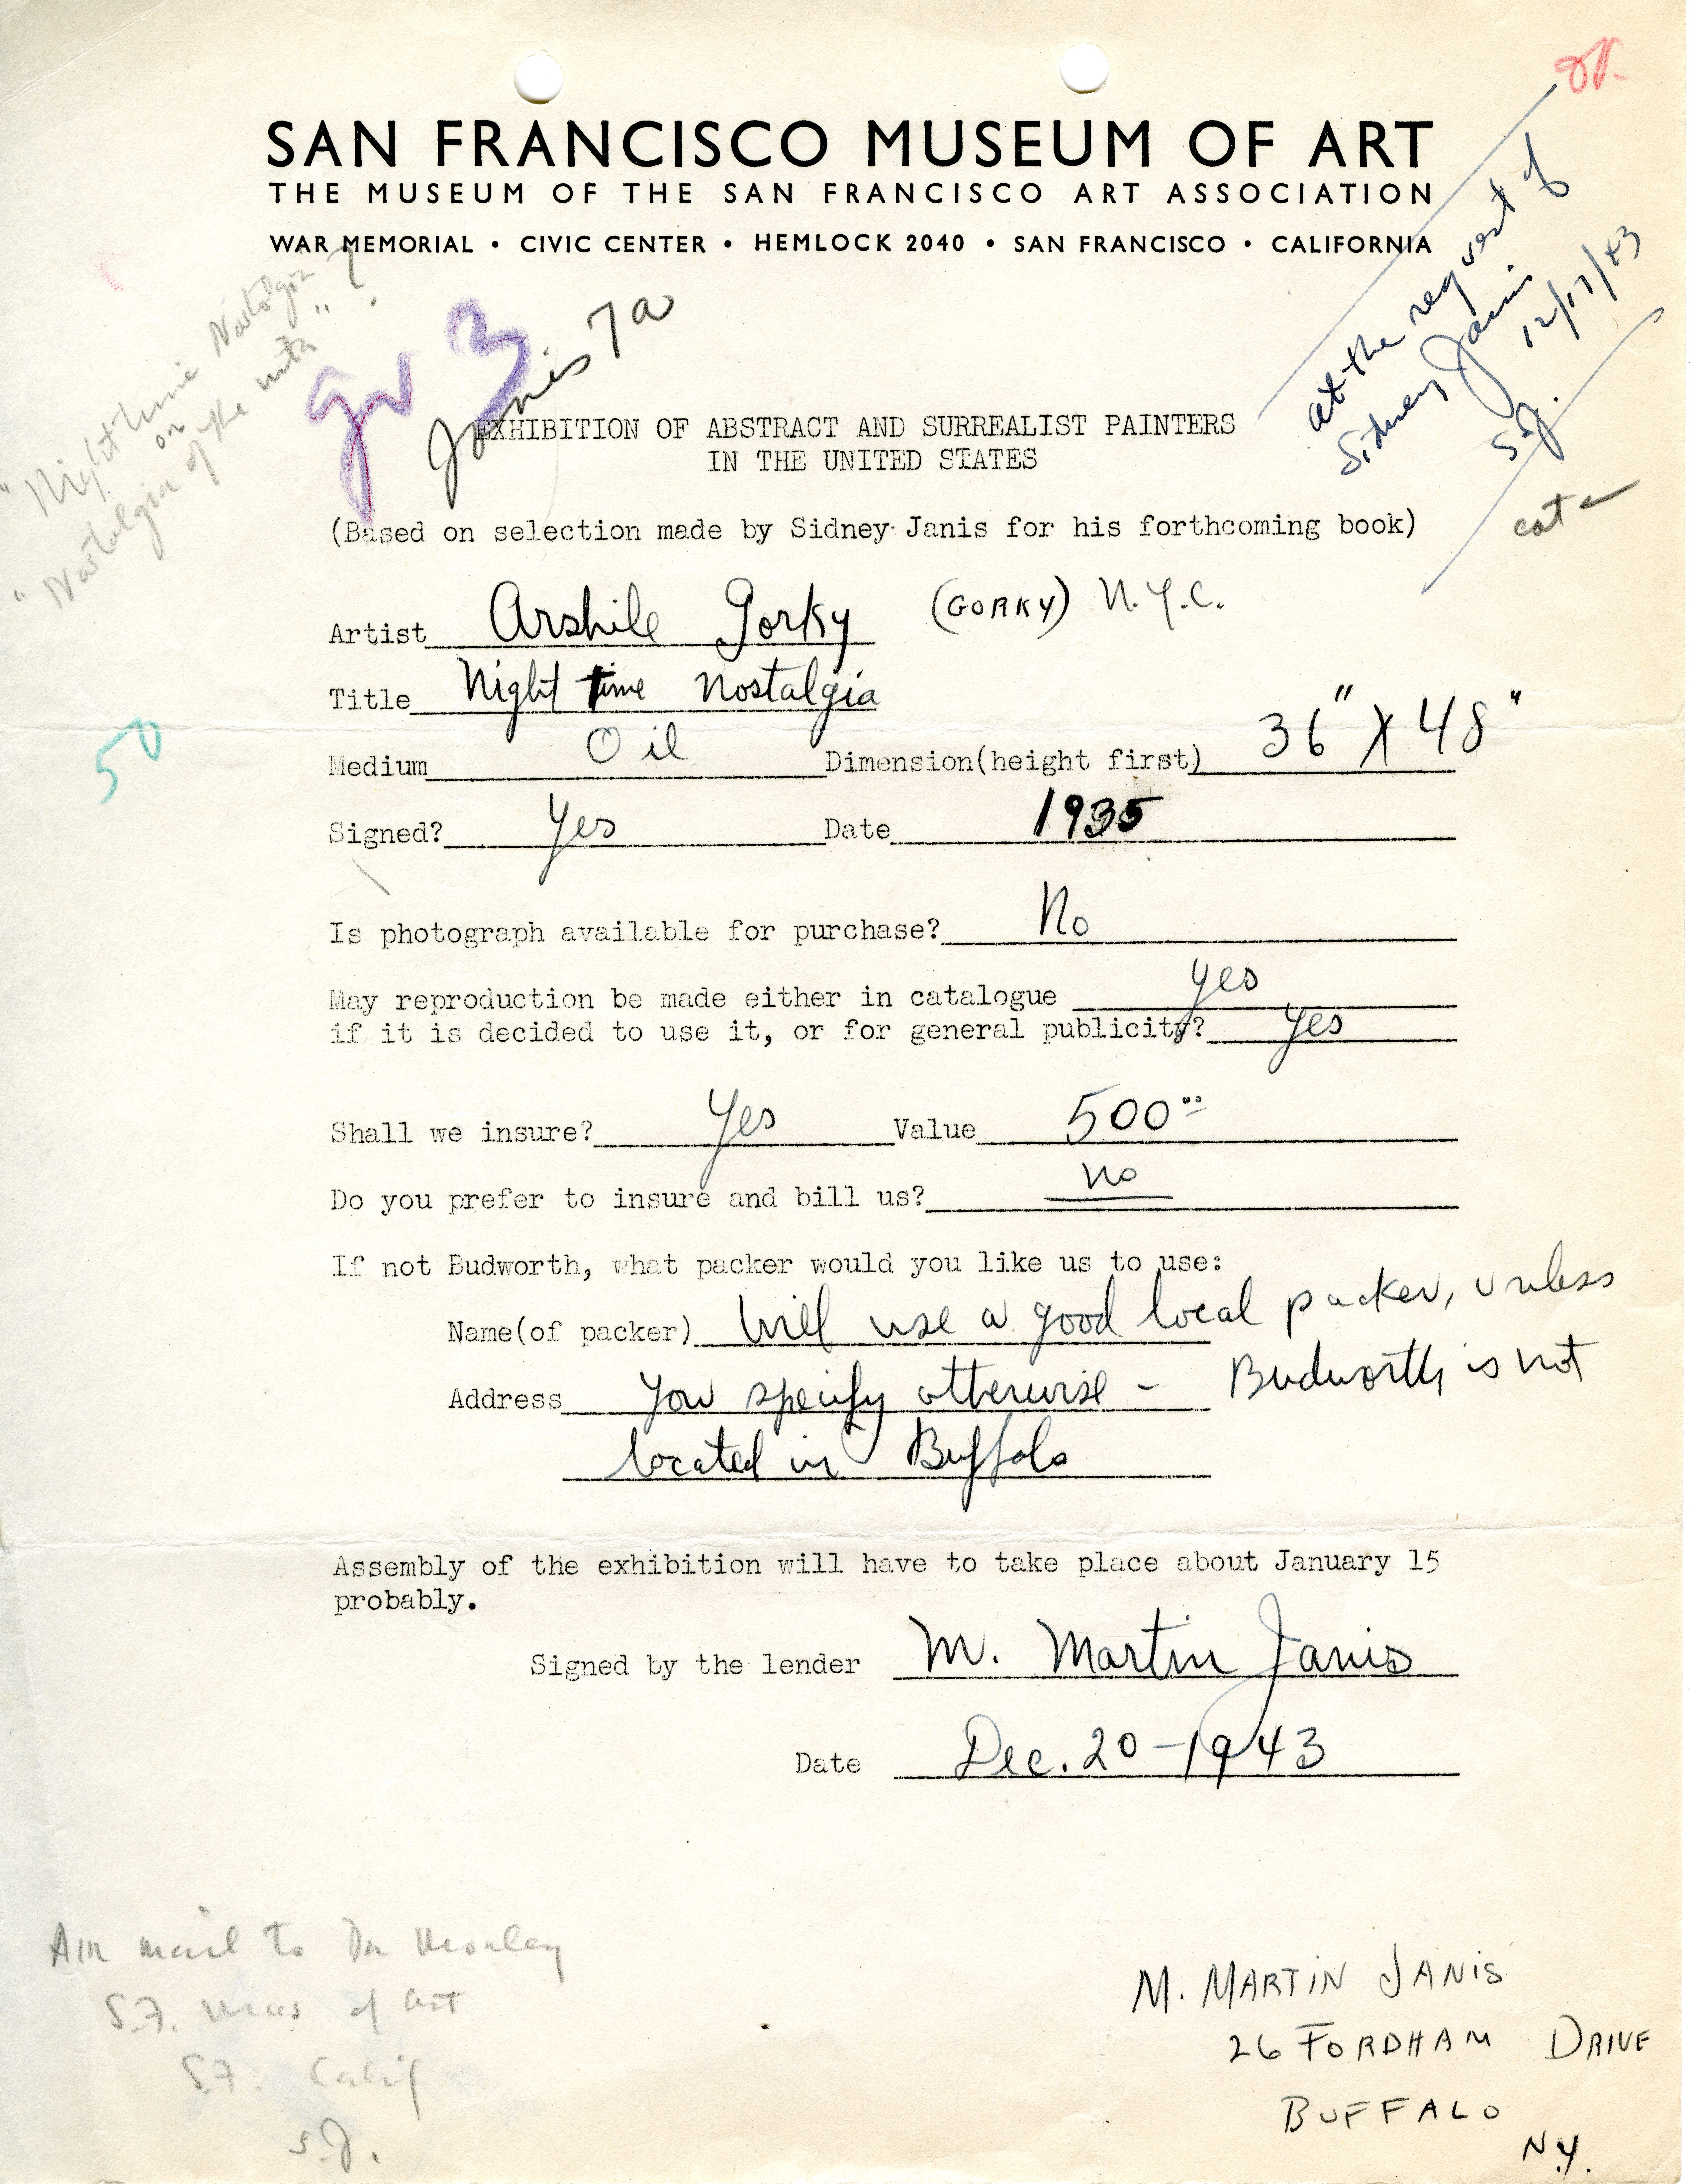 SAN FRANCISCO MUSEUM OF ART
THE MUSEUM OF THE SAN FRANCISCO ART ASSOCIATION
WAR MEMORIAL • CIVIC CENTER • HEMLOCK 2040 • SAN FRANCISCO • CALIFORNIA
at the request of
Sidney Janis
12/17/43
S.J.
cat
"Night time Nostalgia"
or
"Nostalgia of the
" ?
Janis 7a
EXHIBITION OF ABSTRACT AND SURREALIST PAINTERS
IN THE UNITED STATES
(Based on selection made by Sidney Janis for his forthcoming book)
Artist Arshile Gorky (GORKY) N.Y.C.
Title Night time Nostalgia
50
Medium Oil Dimension(height first) 36" X 48"
Signed? Yes Date 1935
Is photograph available for purchase? No
May reproduction be made either in catalogue yes
if it is decided to use it, or for general publicity? Yes
Shall we insure? Yes Value 500.00
Do you prefer to insure and bill us? no
If not Budworth, what packer would you like us to use:
Name(of packer) Will use a good local packer, unless
Address you specify otherwise - Budworth is not
located in Buffalo
Assembly of the exhibition will have to take place about January 15
probably.
Signed by the lender M. Martin Janis
Date Dec. 20-1943
Air mail to Dr Morley
S.F. Mus of Art
S.F. Calif
S.J.
M. MARTIN JANIS
26 FORDHAM DRIVE
BUFFALO
N.Y.